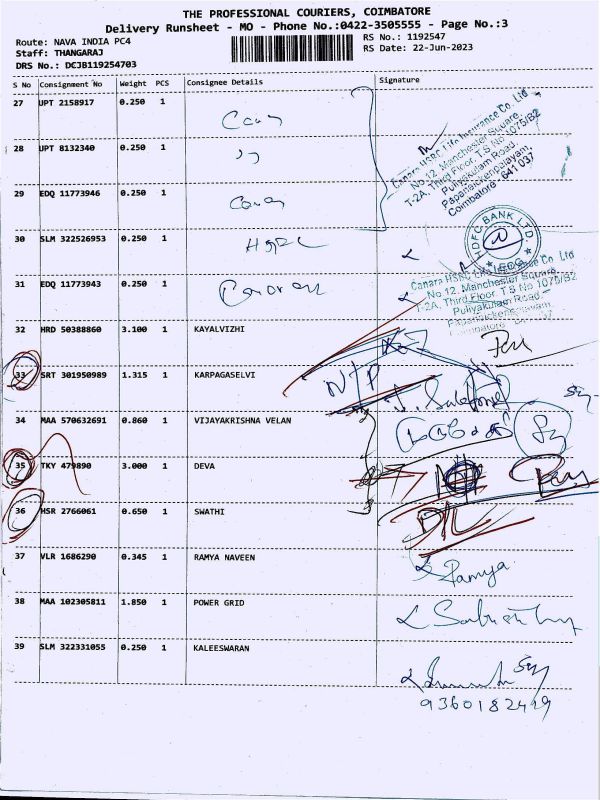 THE PROFESSIONAL COURIERS, COIMBATORE
Delivery Runsheet - MO - Phone No.:0422-3505555 - Page No.:3
Route: NAVA INDIA PC4
RS No.: 1192547
Staff: THANGARAJ
RS Date: 22-Jun-2023
DRS No.: DCJB119254703
S No Consignment No Weight PCS Consignee Details Signature
27 UPT 2158917 0.250 1
28 UPT 8132340 0.250 1
Canara HSBC Life Insurance Co. Ltd
No.12, Manchester Square,
T-2A, Third Floor, T.S No 1075/B2
Puliyakulam Road,
Papanaickenpalayam,
Coimbatore - 641 037
29 EDQ 11773946 0.250 1
30 SLM 322526953 0.250 1
HDFC BANK LTD.
31 EDQ 11773943 0.250 1
Canara HSBC Life Insurance Co. Ltd
No.12, Manchester Square,
T-2A, Third Floor, T.S No 1075/B2
Puliyakulam Road
Papanaickenpalayam,
Coimbatore
32 HRD 50388860 3.100 1 KAYALVIZHI
33 SRT 301950989 1.315 1 KARPAGASELVI
34 MAA 570632691 0.860 1 VIJAYAKRISHNA VELAN
35 TKY 479890 3.000 1 DEVA
36 HSR 2766061 0.650 1 SWATHI
37 VLR 1686290 0.345 1 RAMYA NAVEEN
Ramya
38 MAA 102305811 1.850 1 POWER GRID
39 SLM 322331055 0.250 1 KALEESWARAN
9360182429